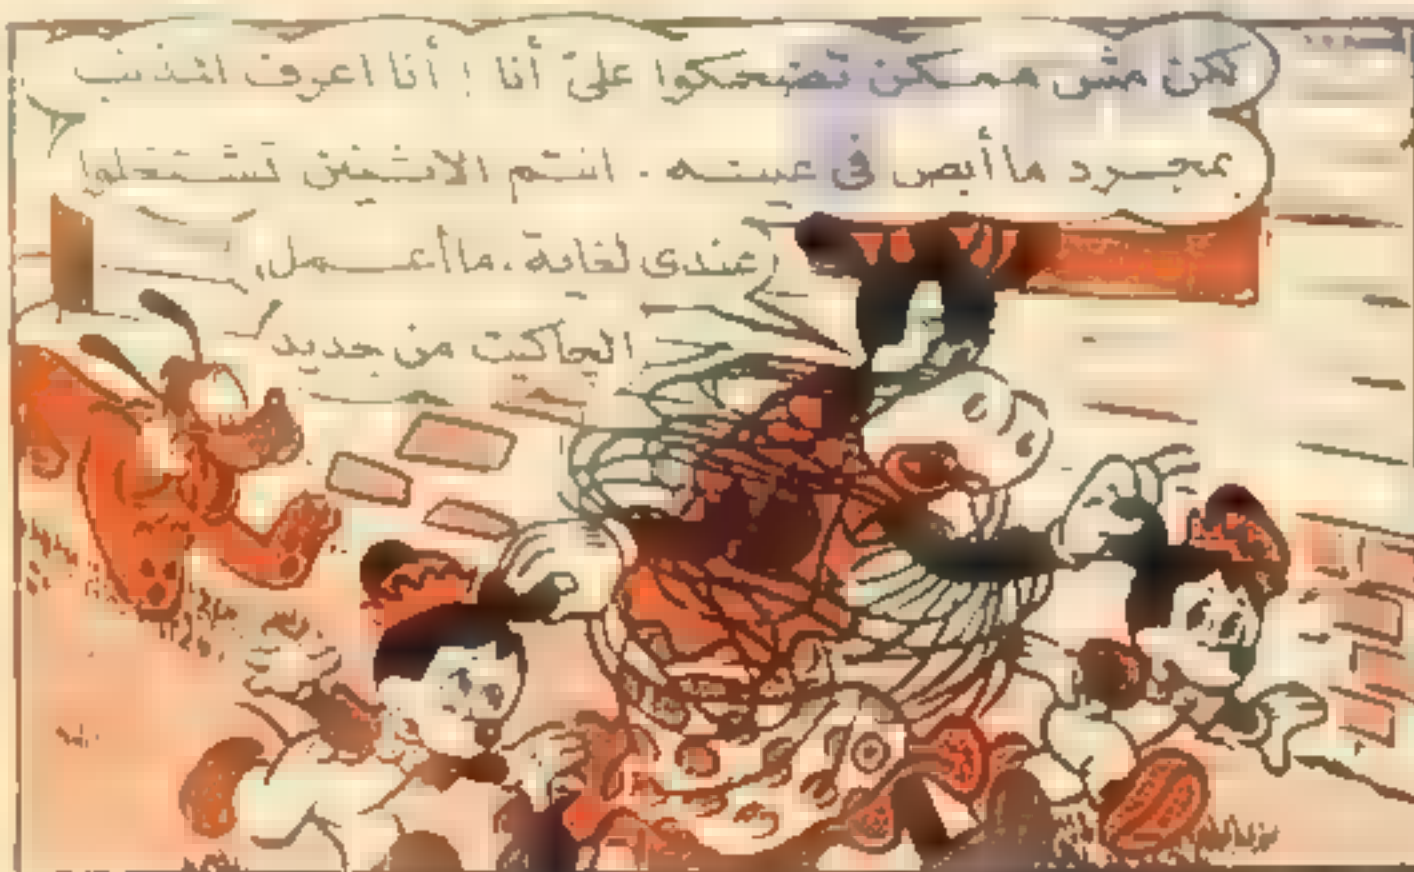 لكن مش ممكن تضحكوا علىّ أنا ! أنا اعرف المذنب
بمجرد ما أبص فى عينه . انتم الاتنين تشتغلوا
عندى لغاية . ما أعمل
الجاكيت من جديد